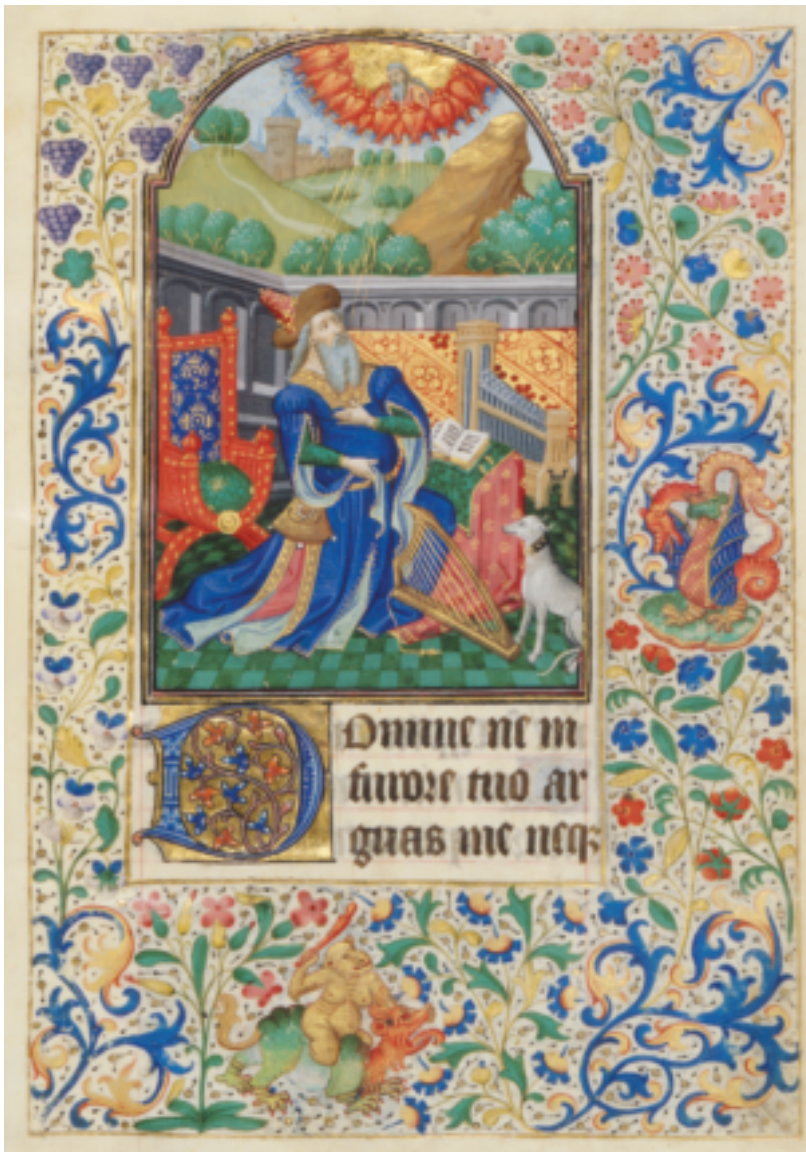 Domine ne in
furore tuo ar
guas me neqȝ